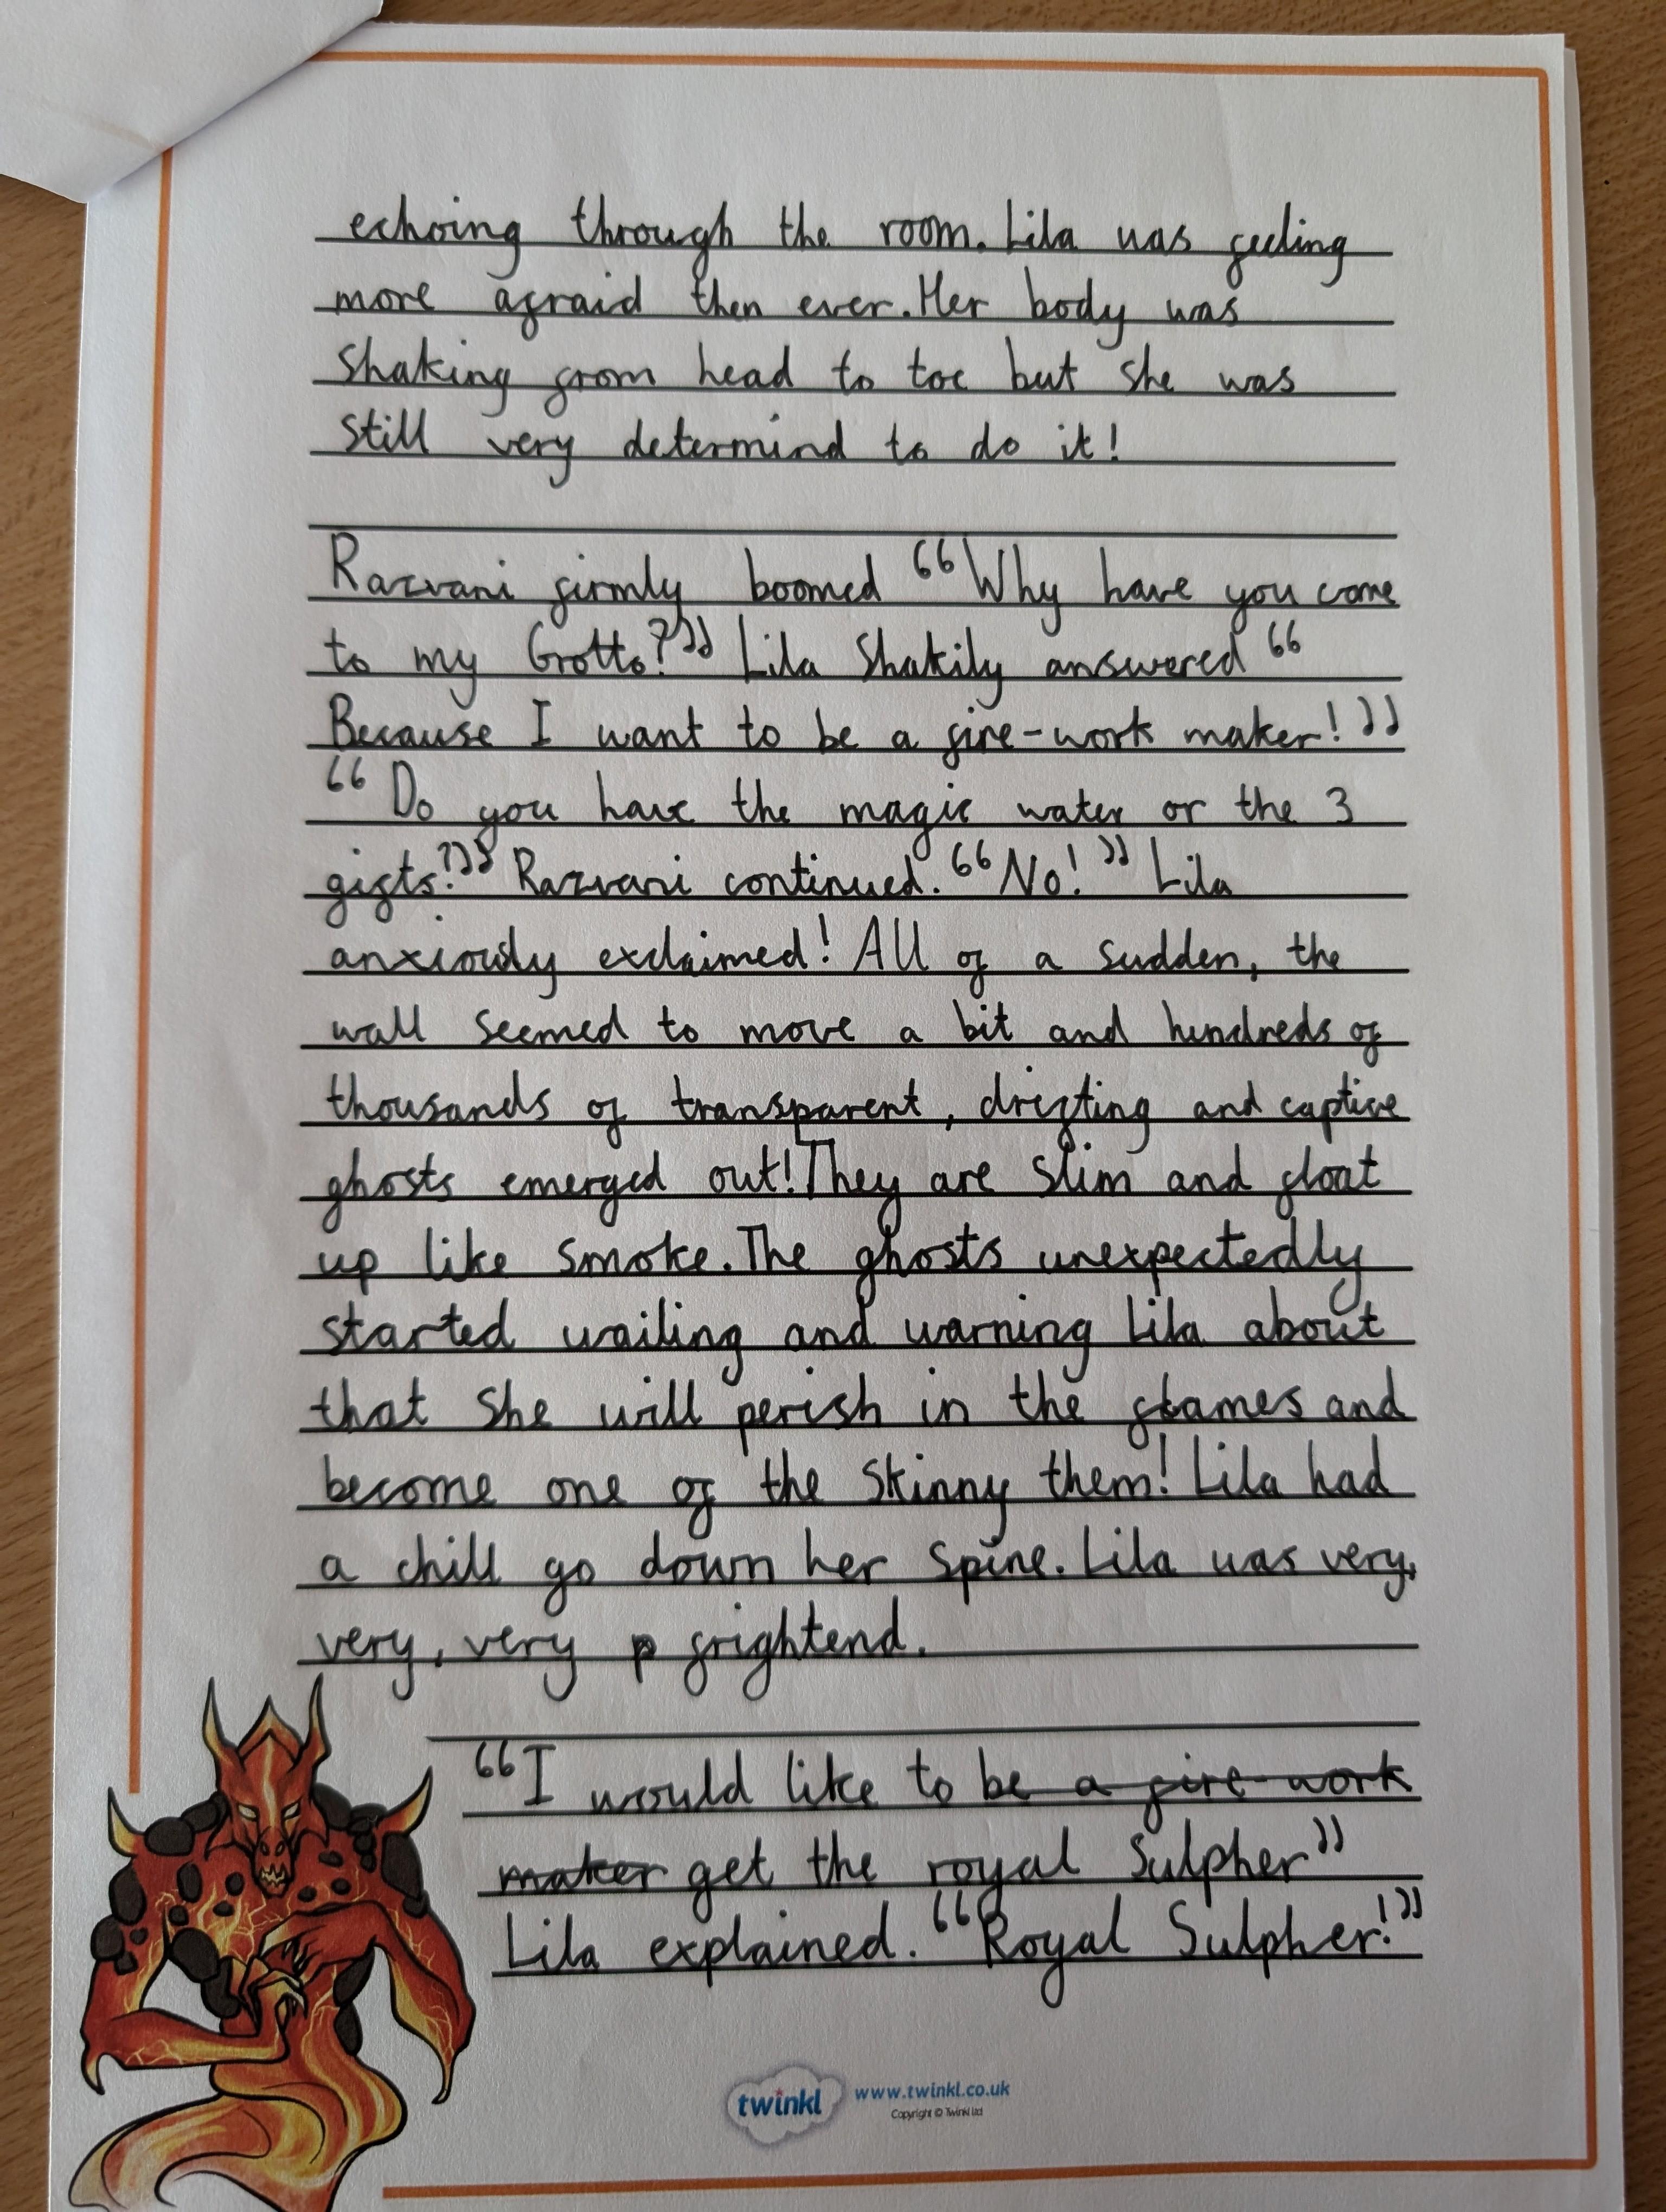 echoing through the room. Lila was feeling
more afraid then ever. Her body was
shaking from head to toe but she was
still very determind to do it!
Razvani firmly boomed “Why have you come
to my Grotto?” Lila shakily answered “
Because I want to be a fire-work maker!”
“Do you have the magic water or the 3
gifts?” Razvani continued. “No!” Lila
anxiously exclaimed! All of a sudden, the
wall seemed to move a bit and hundreds of
thousands of transparent, drifting and captive
ghosts emerged out! They are slim and float
up like smoke. The ghosts unexpectedly
started wailing and warning Lila about
that she will perish in the flames and
become one of the skinny them! Lila had
a chill go down her spine. Lila was very,
very, very p frightend.
“I would like to be a fire-work
maker get the royal Sulpher”
Lila explained. “Royal Sulpher!”
twinkl www.twinkl.co.uk
Copyright © Twinkl Ltd